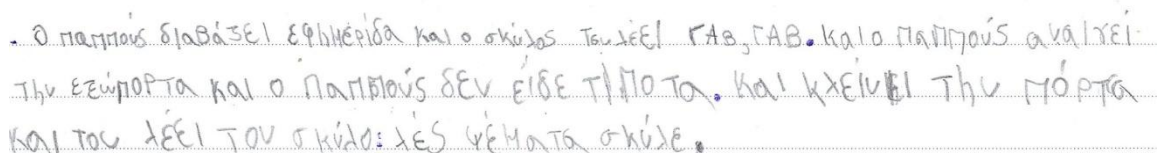 . Ο παππούς διαβάζει εφημέρίδα και ο σκύλος του λέει ΓΑΒ, ΓΑΒ. και ο παππούς αναίγει
την εξώπορτα και ο παππούς δεν είδε τίποτα. και κλείνει την πόρτα
και του λέει του σκύλο: λές ψέματα σκύλε.